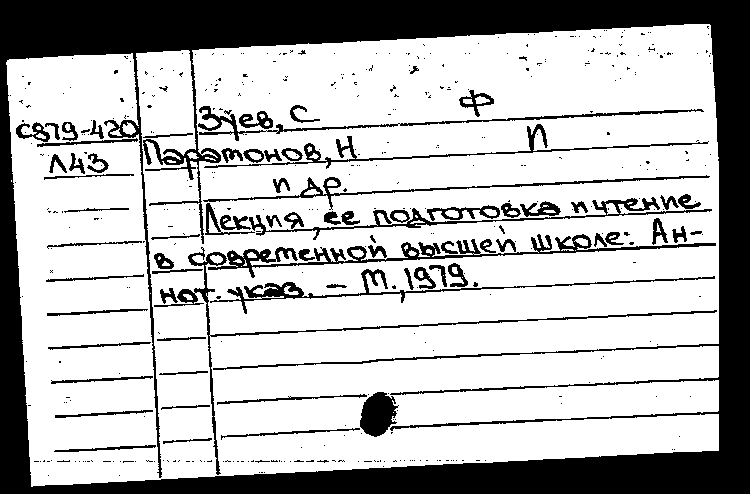 Зуев, С Ф
С879-420
Парамонов, Н П
Л43
и др.
Лекция, ее подготовка и чтение
в современной высшей школе: Ан-
нот. указ. – М., 1979.